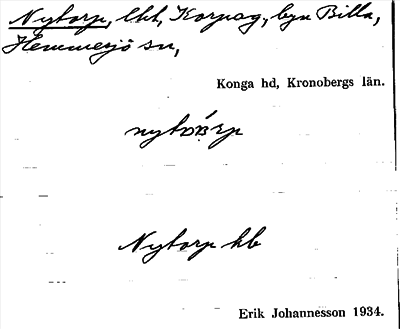 Nytorp, lht, Korpag, byn Billa,
Hemmesjö sn,
Konga hd, Kronobergs län.
Nytorp kb
Erik Johannesson 1934.